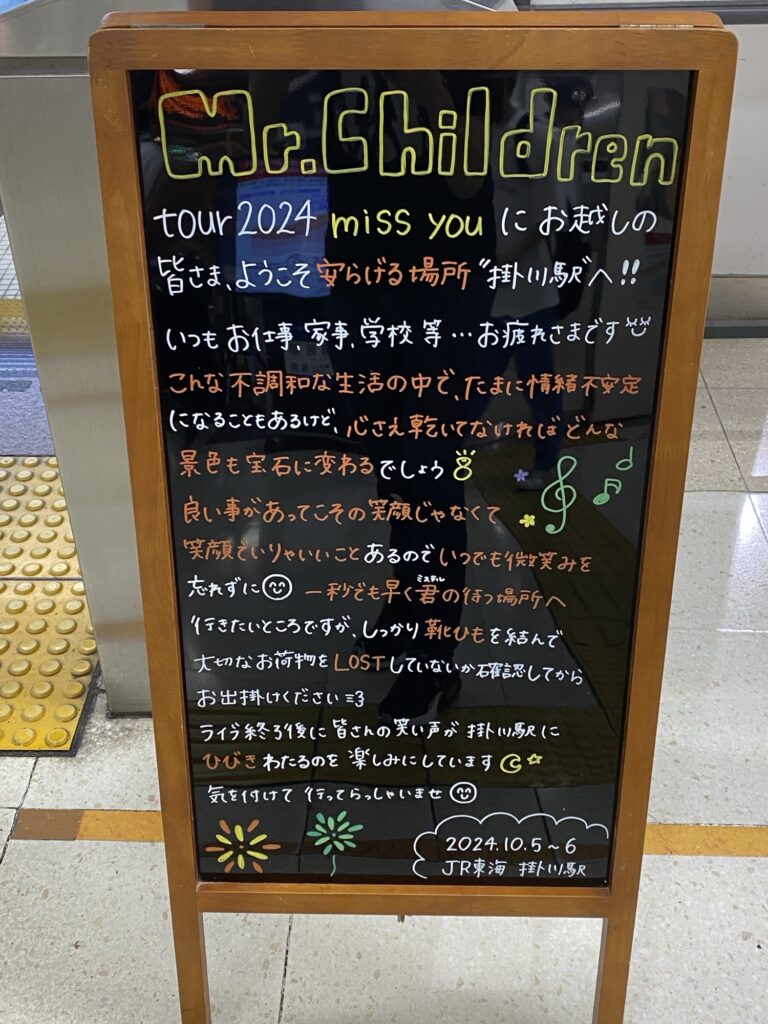 Mr.Children
tour 2024 miss you にお越しの
皆さま、ようこそ安らげる場所"掛川駅"へ!!
いつもお仕事、家事、学校 等…お疲れさまです
こんな不調和な生活の中で、たまに情緒不安定
になることもあるけど、心さえ乾いてなければどんな
景色も宝石に変わるでしょう
良い事があってこその笑顔じゃなくて
笑顔でいりゃいいことあるのでいつでも微笑みを
忘れずに 一秒でも早く君の待つ場所へ
ミスチル
行きたいところですが、しっかり靴ひもを結んで
大切なお荷物をLOSTしていないか確認してから
お出掛けください
ライブ終了後に皆さんの笑い声が掛川駅に
ひびきわたるのを楽しみにしています
気を付けて行ってらっしゃいませ
2024.10.5~6
JR東海 掛川駅